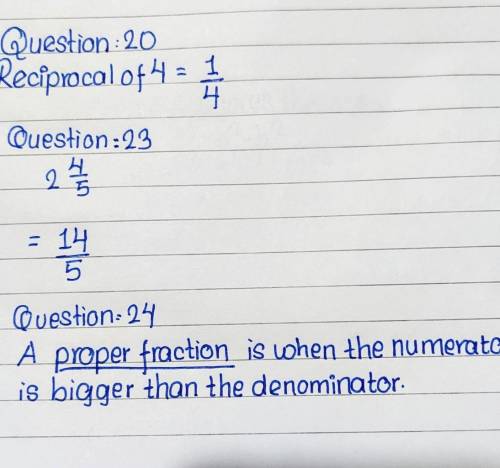 Question: 20
Reciprocal of 4 = 1/4
Question: 23
2 4/5
= 14/5
Question: 24
A proper fraction is when the numerato
is bigger than the denominator.